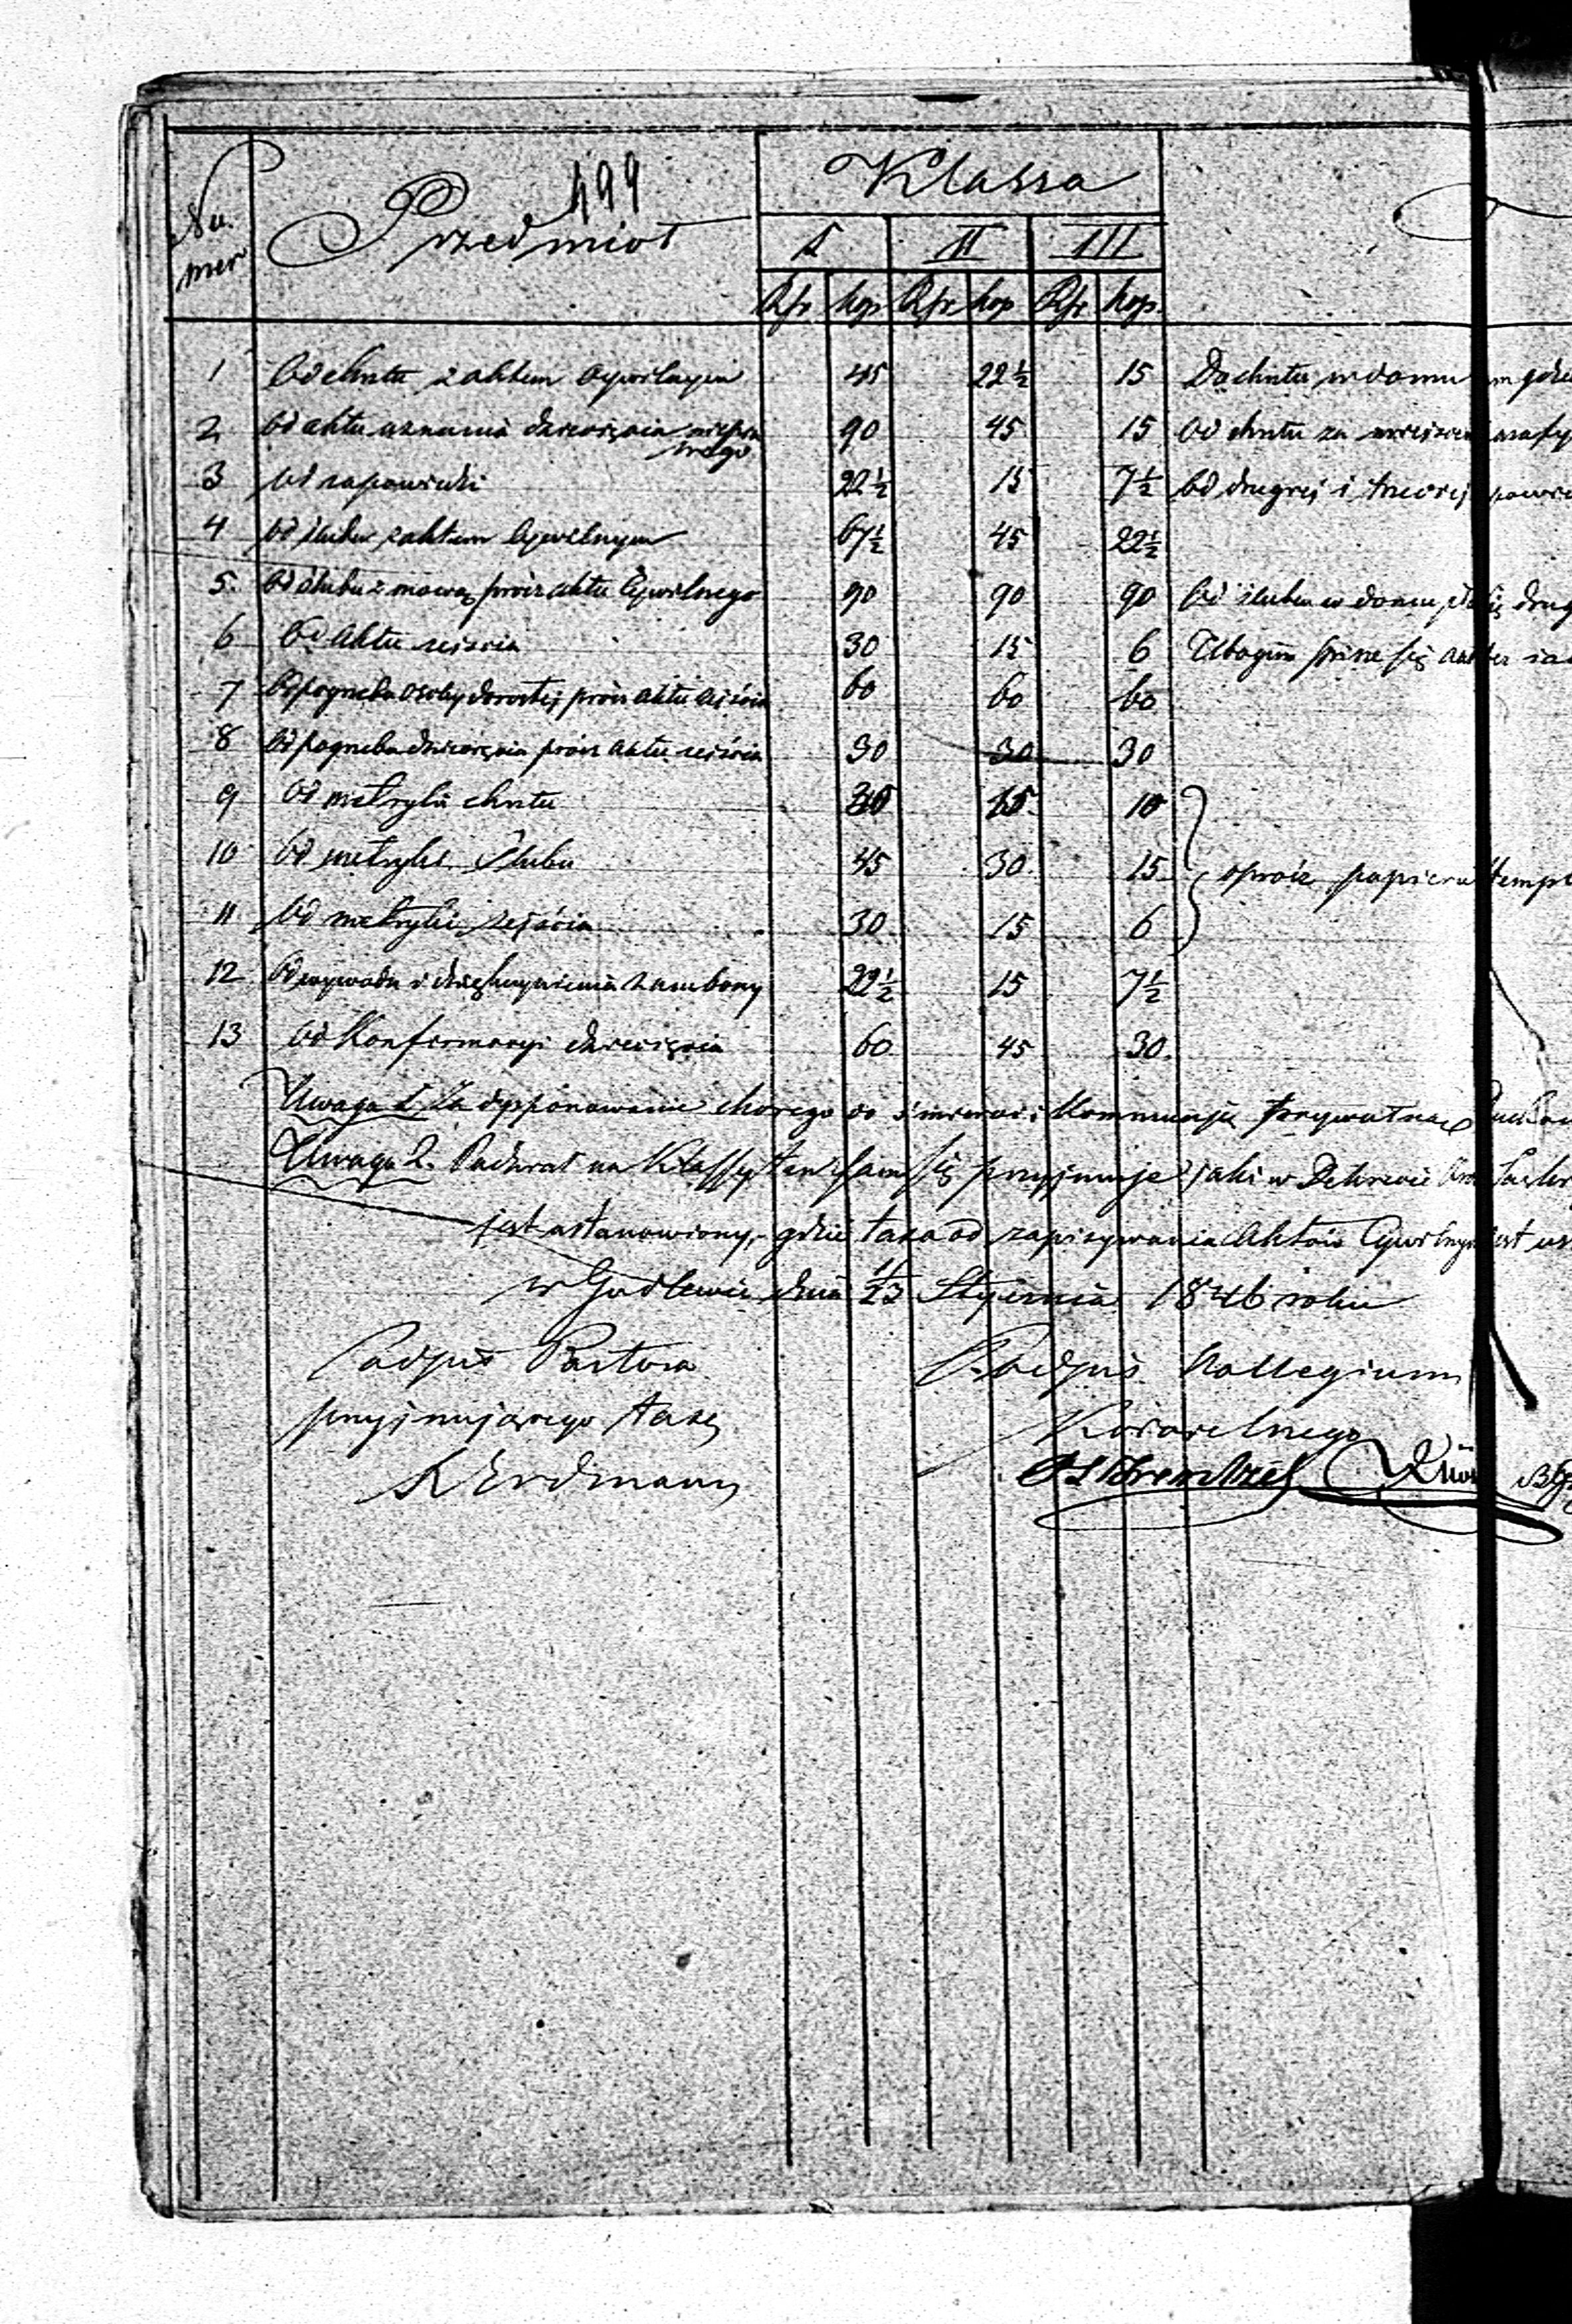 499
Nu mer Przedmiot Klassa
I II III
Rsr kop Rsr kop Rsr kop
1 Od chrztu z aktem Cywilnym 45 22½ 15 Do chrztu w domu
2 Od aktu uznania dziecięcia niepra wego 90 45 15 Od chrztu za
3 Od zapowiedzi 22½ 15 7½ Od drugiej i trzeciej
4 Od ślubu z aktem Cywilnym 67½ 45 22½
5. Od ślubu z mową prócz aktu Cywilnego 90 90 90 Od ślubu w domu
6 Od Aktu zejścia 30 15 6 Ubogim pisze się
7 Od pogrzebu osoby dorosłej prócz aktu zejścia 60 60 60
8 Od pogrzebu dziecięcia prócz aktu zejścia 30 30 30
9 Od metryki chrztu 15 10
10 Od metryki Ślubu 45 30 15 oprócz papieru
11 Od metryki zejścia 30 15 6
12 Od wywodu i dziękczynienia z ambony 22½ 15 7½
13 Od Konfirmacyi dziecięcia 60 45 30
Uwaga 1. Za dysponowanie chorego do śmierci i Kommunją prywatną
Uwaga 2. Podział na Klassy ten sam się przyjmuje jaki w Dekrecie
jest ustanowiony, gdzie taxa od zapisywania Aktów
w Godlewie dnia 11/23 Stycznia 1846 roku
Podpis Pastora Podpis Kollegium
przyjmującego taxę Kościelnego
Erdmann